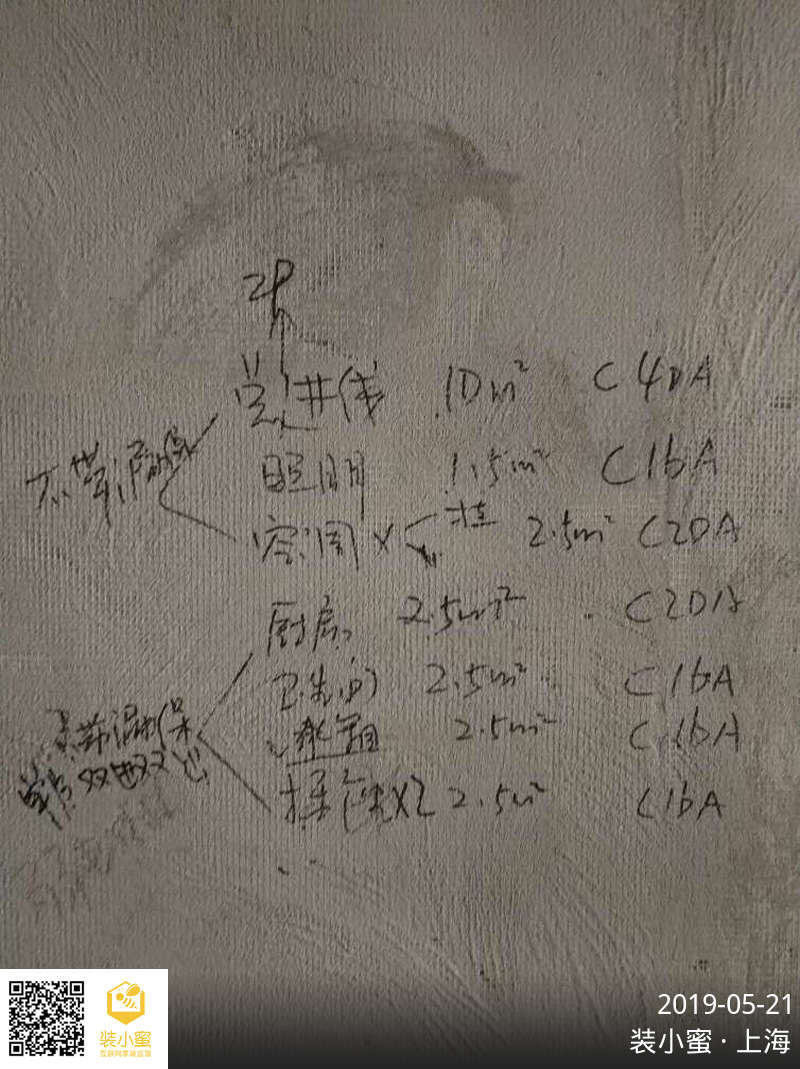 2P
总进线 10m² C40A
不带漏保
照明 1.5m² C16A
空调× 挂 2.5m² C20A
厨房 2.5m² C20A
卫生间 2.5m² C16A
带漏保
2.5m² C16A
双进双出
插 ×2 2.5m² C16A
装小蜜
2019-05-21
装小蜜·上海